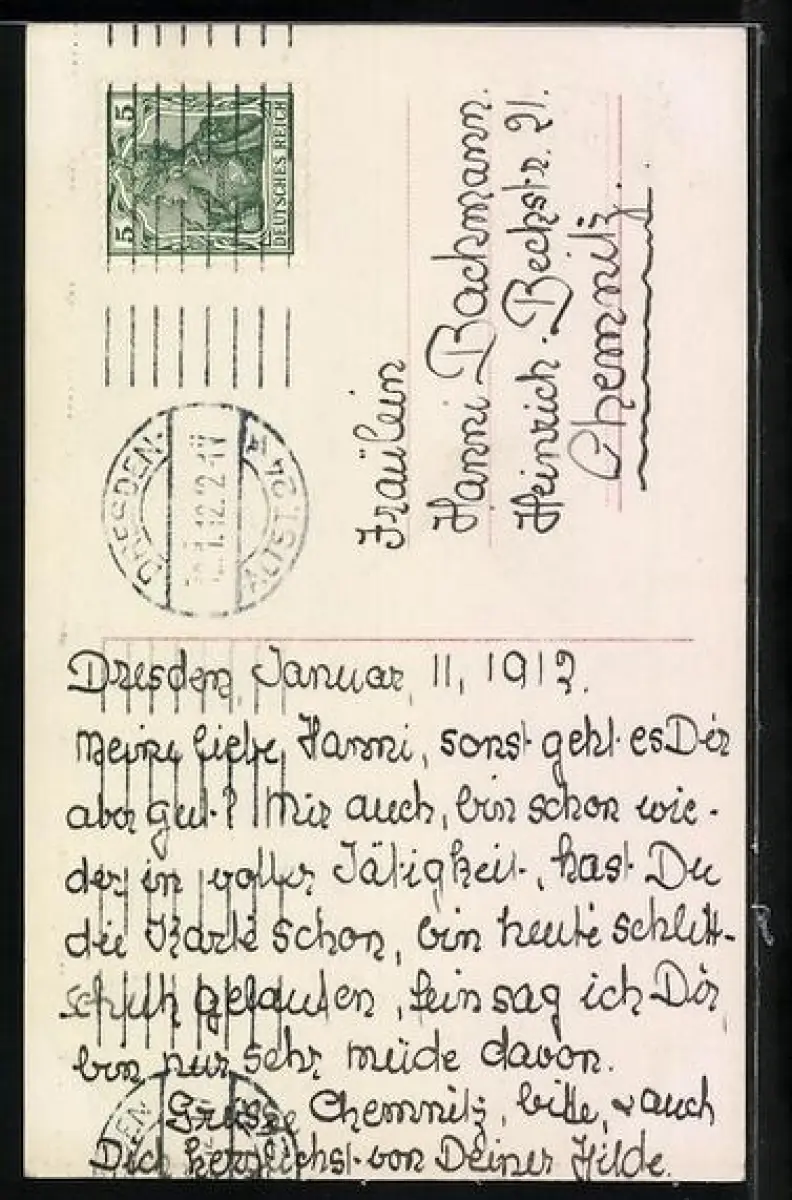 5 5
DEUTSCHES REICH
DRESDEN-
ALTST. 24
1.12.12-1V
Fräulein
Hanni Bachmann.
Heinrich Beckstr. 21.
Chemnitz.
Dresden, Januar, 11, 1912.
Meine liebe Hanni, sonst geht es Dir
aber gut? Mir auch, bin schon wie-
der in voller Tätigkeit, hast Du
die Karte schon, bin heute schlitt-
schuh gelaufen, fein sag ich Dir,
bin nur sehr müde davon.
Grüsse Chemnitz, bitte, & auch
Dich herzlichst von Deiner Hilde.